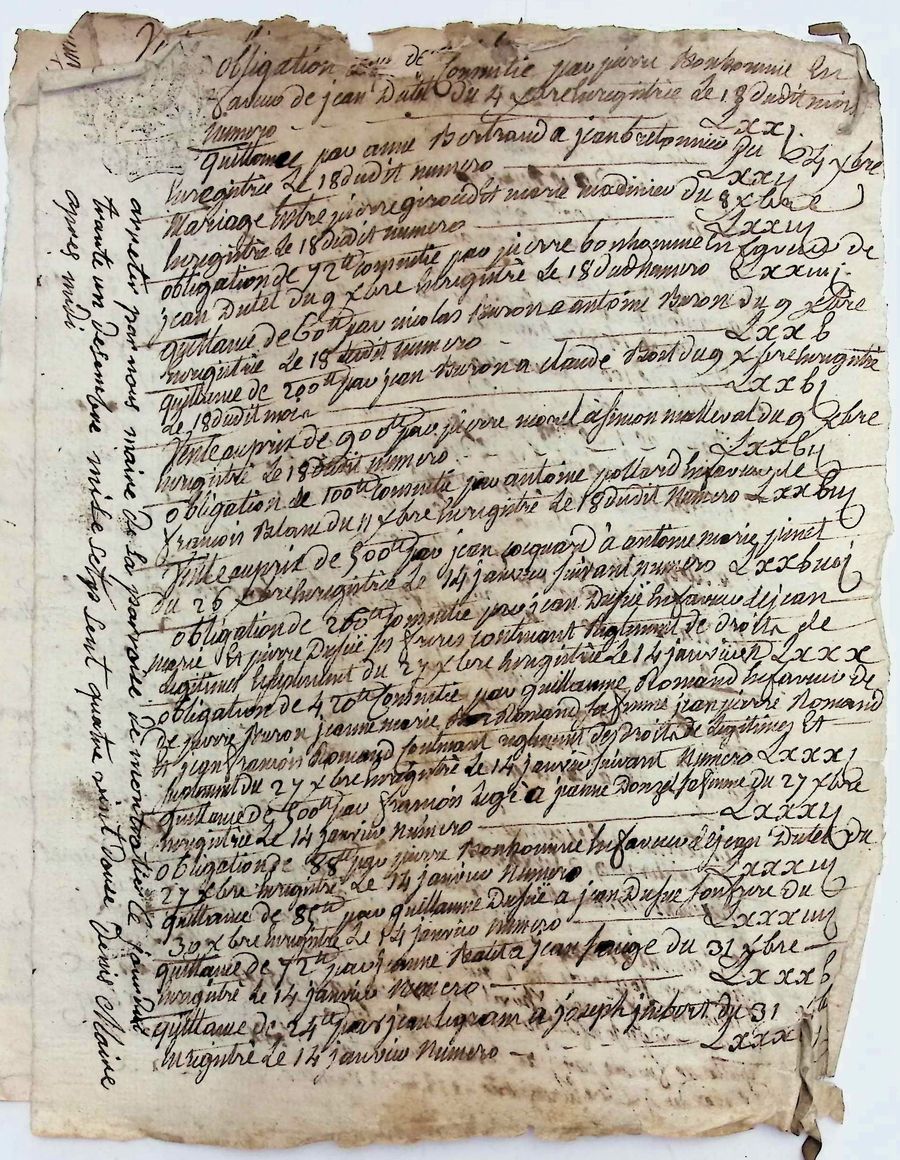 obligation de consentie par pierre Bonhomme En
faveur de jean Dutel du 4 xbre Enregistrée Le 18 dudit mois
numero LXXI
quittance par anne Bertrand a jean bretonnier du 4 xbre
Enregitrée Le 18 dudit numero LXXII
Mariage Entre pierre giroud et marie madinier du 8 xbre
Enregitré le 18 dudit numero LXXIII
obligation de 72tt Consentie par pierre bonhomme En faveur de
jean Dutel du 9 xbre Enregitré Le 18 dud numero LXXIIII
quittance de 60tt par nicolas Buron a antoine Buron du 9 xbre
Enregitrée Le 18 dudit numero LXXb
quittance de 200tt par jean Buron a claude du 9 xbre Enregitrée
Le 18 dudit mois LXXbj
Vente au prix de 900tt par pierre morel a simon matteval du 9 xbre
Enregitré le 18 dudit numero LXXbij
obligation de 100tt Consentie par antoine pollard En faveur de
francois Blanc du 11 xbre Enregitrée Le 18 dudit Numero LXXbiij
Vente au prix de 500tt par jean cocquard à antoine marie
du 26 xbre Enregitrée Le 14 janvier suivant numero LXXbiiij
obligation de 260tt Consentie par jean Dufuë En faveur de jean
marie Et pierre Dufuë ses freres Contenant Reglement de droits de
Legitimes Equipolent du 27 xbre Enregitrée Le 14 janvier N LXXX
obligation de 420tt Consentie par guillaume Romand En faveur de
De pierre Buron jeanne marie Romand sa femme jean pierre Romand
Et jean francois Romand Contenant reglement des Droits de Legitimes Et
du 27 xbre Enregitré Le 14 janvier suivant Numero LXXXj
quittance de 500tt par a jeanne Donzel sa femme du 27 xbre
Enregitrée Le 14 janvier numero LXXXij
obligation de 88tt par pierre Bonhomme En faveur de jean Dutel du
27 xbre Enregitré Le 14 janvier Numero LXXXiij
quittance de 85tt par guillaume Dufuë a jean Dufuë son frere du
30 xbre Enregitrée Le 14 janvier numero LXXXiiij
quittance de 72tt par jeanne a jean du 31 xbre
Enregitré le 14 janvier Numero LXXXb
quittance de 24tt par jean legrain à joseph jmbert du 31
Enregitré Le 14 janvier Numero LXXX
arretté par nous maire de la parroisse de montrottier le jourdui
trante un desembre mille sept sent quatre vint douse Denis Maire
apres midi